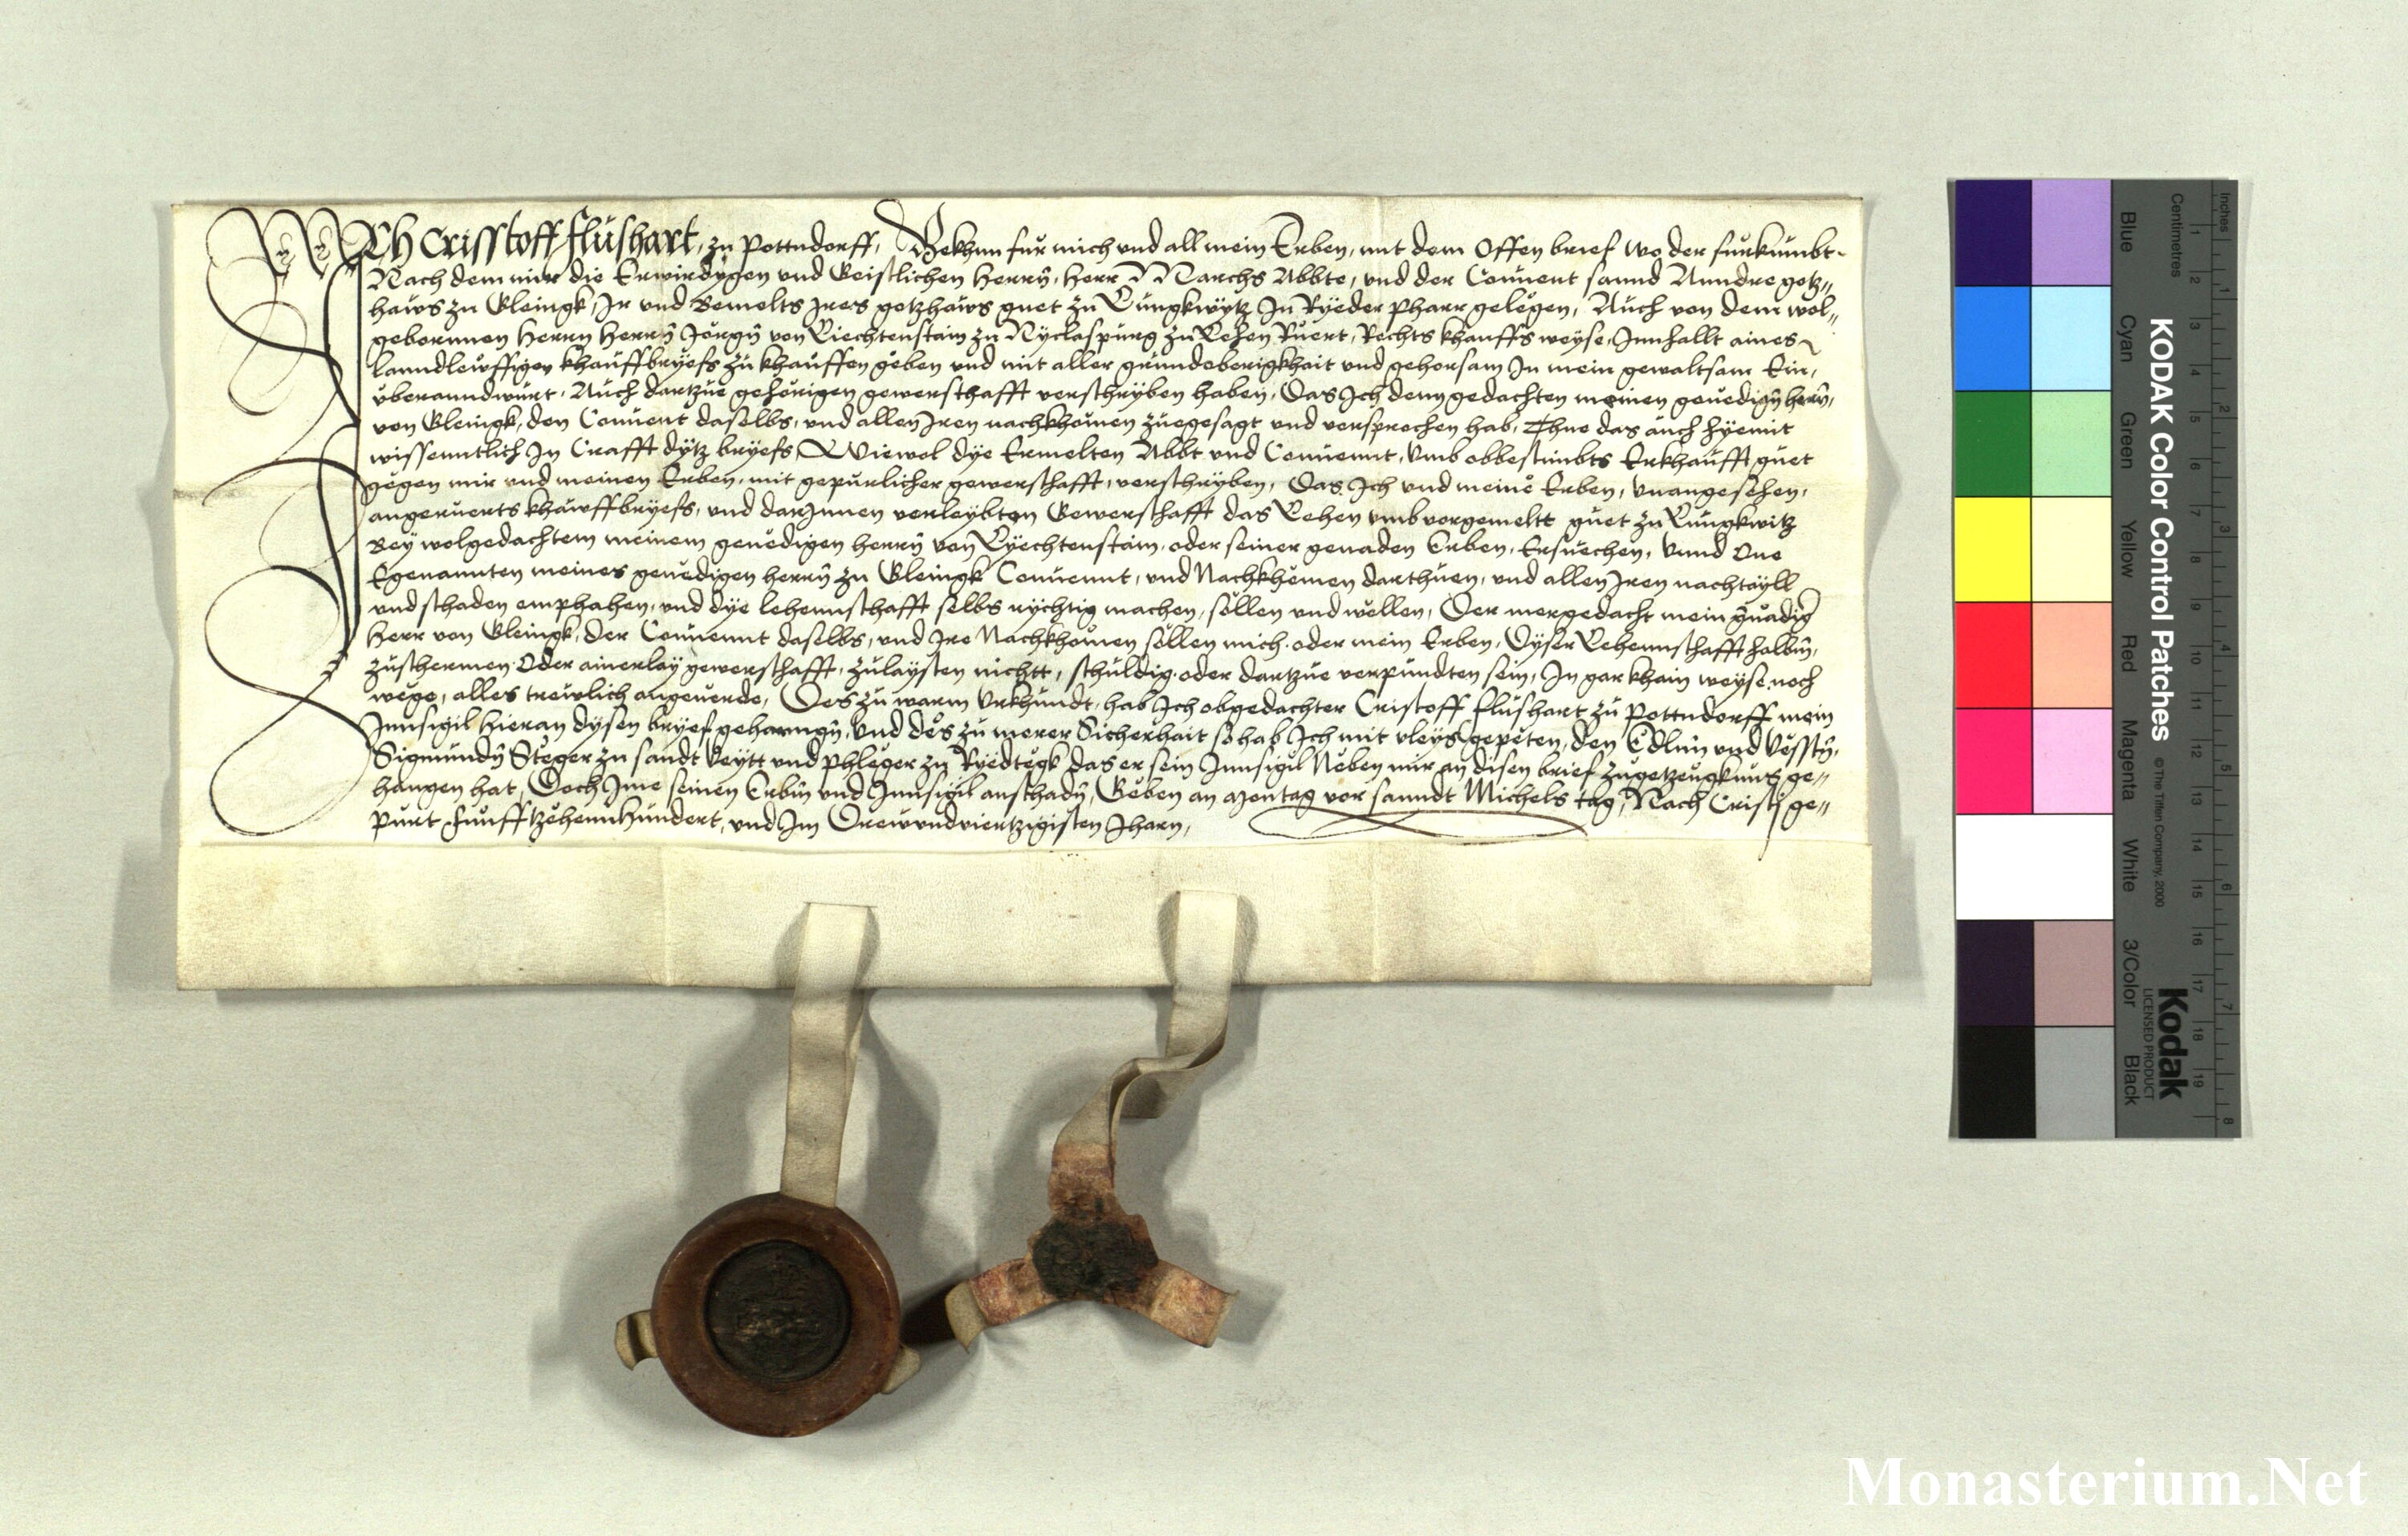 ICH Crisstoff flüshart, zu Pottndorff, Bekhenn für mich und all mein Erben, mit dem Offen brief wo der fürkumbt.
Nach dem mir die Erwirdygen und Geistlichen herrn, herr Marchs Abbte, und der Convent sannd Anndre gotz„
haws zu Gleingk, Ir und Bemelts Ires gotzhaws guet zu Lungkwytz In Ryeder pharr gelegen, Auch von dem wol„
gebornnen herrn herrn Jörgn von Liechtenstain zu Nyclaspurg zu Lehen Ruert, Rechts khauffs weyse, Innhallt aines
lanndlewffigen khauffbryefs zu khauffen geben und mit aller grundoberigkhait und gehorsam In mein gewaltsam Ein,
überanndwurt, Auch dartzue gehörigen gewerschafft verschryben haben, Das Ich dem gedachten meinen genedign herrn,
von Gleingk, den Convent daselbs, und allen Iren nachkhomen zuegesagt und versprochen hab, Thue das auch hyemit
wissenntlich In Crafft dytz bryefs, Wiewol dye Ermelten Abbt und Convennt, Umb obbestimbts Erkhaufft guet
gegen mir und meinen Erben, mit gepürlicher gewerschafft, verschryben, Das Ich und meine Erben, unangesehen,
angeruerts khauffbryefs, und darInnen verleybten Gewerschafft das Lehen umb vorgemellt guet zu Lungkwitz
Bey wolgedachtem meinem genedigen herrn von Lyechtenstain, oder seiner genaden Erben, Ersuechen, Unnd One
Egenannten meines genedigen herrn zu Gleingk Convennt, und Nachkhomen darthuen, und allen Iren nachtayll
und schaden emphahen, und dye lehennschafft selbs rychtig machen, sollen und wellen, Der mergedacht mein gnadig
herr von Gleingk, der Convennt daselbs, und Ire Nachkhomen sollen mich oder mein Erben, Dyser Lehennschafft halbn,
zuschermen Oder ainerlay gewerschafft, zulaysten nichtt, schuldig oder dartzue verpundten sein, In gar khain weyse noch
wege, alles trewlich angeverde, Des zu warm Urkhundt, hab Ich obgedachter Cristoff flushart zu Pottndorff mein
Innsigil hieran dysen bryef gehanngn, Und des zu merer Sicherhait so hab Ich mit vleys gepeten, den Edlnn und Vesstn,
Sigmundn Steger zu sandt Veytt und phleger zu Ryedtegk das er sein Innsigil Neben mir an disen brief zugetzeugknus ge„
hangen hat, Doch Ime seinen Erbn und Innsigil anschadn, Geben an Montag vor sanndt Michels tag, Nach Cristj ge„
purt Funfftzehennhundert, und Im Drewundviertzigisten Jharn,
KODAK Color Control Patches
©The Tiffen Company, 2000
Kodak
LICENSED PRODUCT
Blue
Cyan
Green
Yellow
Red
Magenta
White
3/Color
Black
Centimetres
Inches
1 2 3 4 5 6 7 8 9 10 11 12 13 14 15 16 17 18 19
1 2 3 4 5 6 7 8
Monasterium.Net